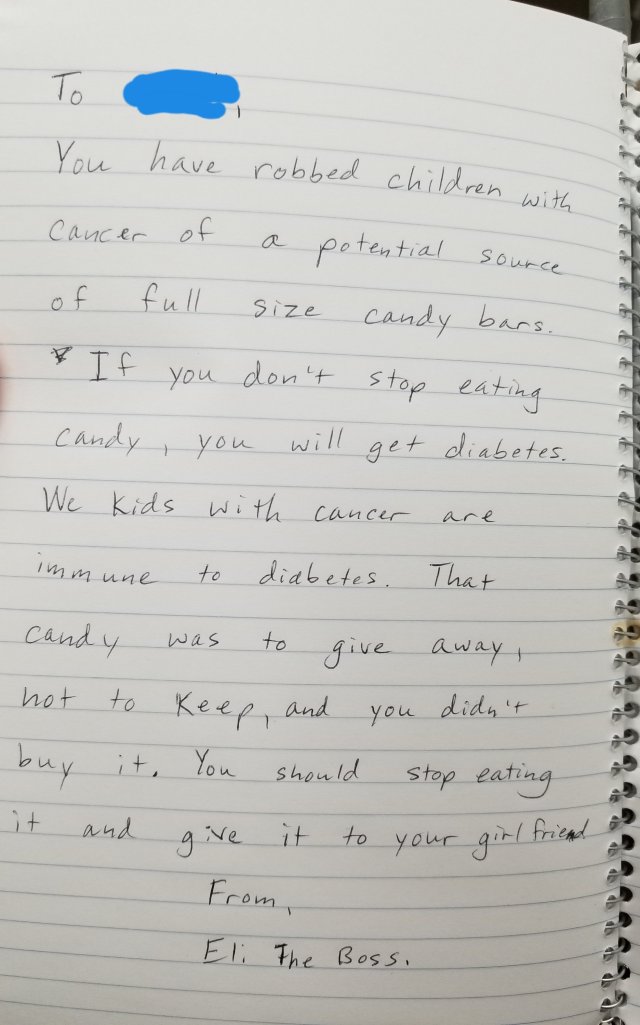 To ,
You have robbed children with
Cancer of a potential source
of full size candy bars.
* If you don't stop eating
candy, you will get diabetes.
We Kids with cancer are
immune to diabetes. That
candy was to give away,
not to Keep, and you didn't
buy it. You should stop eating
it and give it to your girlfriend
From,
Eli The Boss.